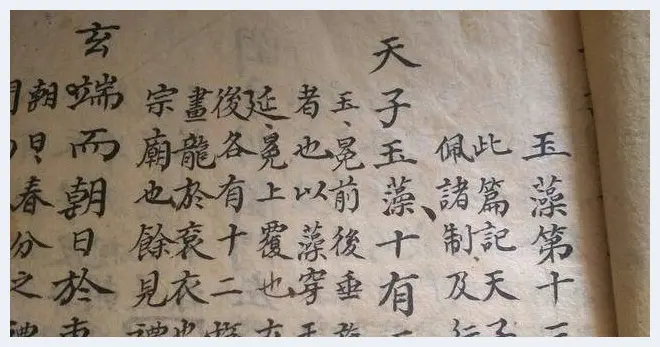 玉藻第十
此篇記天子
佩諸制、及
天子玉藻、十有
玉、冕前後垂
者也以藻穿玉
延、冕上覆也
後各有十二
畫龍於衮衣也
宗廟也餘見禮
玄端而朝日於東
朝日、春分之禮